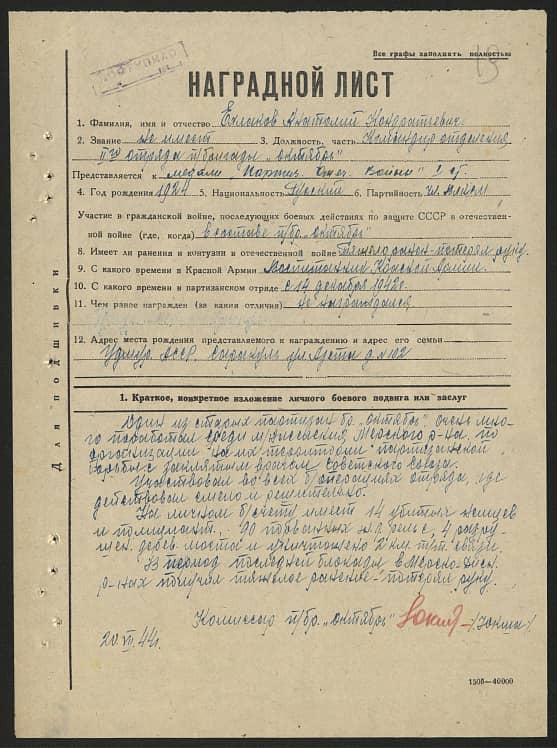 Все графы заполнять полностью
13
НАГРАДНОЙ ЛИСТ
1. Фамилия, имя и отчество Ехланов Анатолий Кондратьевич
2. Звание не имеет 3. Должность, часть Командир отделения
отряда п/бригады „Октябрь"
Представляется к медали „Партиз. Отеч. Войны" I ст.
4. Год рождения 1924 5. Национальность Русский 6. Партийность чл. ВЛКСМ
Участие в гражданской войне, последующих боевых действиях по защите СССР в отечествен-
ной войне (где, когда) в составе п/бр. „Октябрь"
8. Имеет ли ранения и контузии в отечественной войне Тяжело ранен-потерял руку.
9. С какого времени в Красной Армии Воспитанник Красной Армии.
10. С какого времени в партизанском отряде с 14 декабря 1942г.
11. Чем ранее награжден (за какия отличия) не награждался
12. Адрес места рождения представляемого к награждению и адрес его семьи
Удмур. АССР. Сарапуль ул. д. № 102
Для подшивки
1. Краткое, конкретное изложение личного боевого подвига или заслуг
Один из старых партизан бр. „Октябрь" очень мно-
го поработал среди населения р-на, по
организации на их территории партизанской
борьбы с заклятым врагом Советского Союза.
Участвовал во всех б/операциях отряда, где
действовал смело и решительно.
На личном б/счету имеет 14 убитых немцев
и полицман, 90 подорванных ж.д. рельс, 4 разру-
шен. дерев. моста и уничтожено 2 км. тел. связи.
В период последней блокады в
р-нах получил тяжелое ранение-потерял руку.
Комиссар п/бр. „Октябрь" /Юкша/
20.VII.44г.
1505—40000